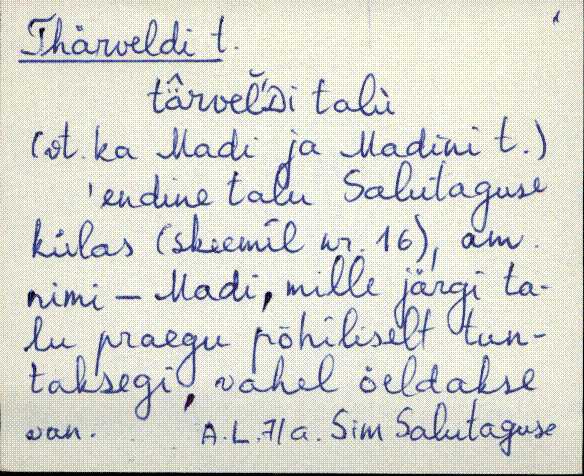 Thärveldi t.
tä̂rvelˇDi talù
(vt. ka Madi ja Madini t.)
'endine talu Salutaguse
külas (skeemil nr. 16), am.
nimi – Madi, mille järgi ta-
lu praegu põhiliselt tun-
taksegi, vahel öeldakse
van. A.L. 71a. Sim Salutaguse